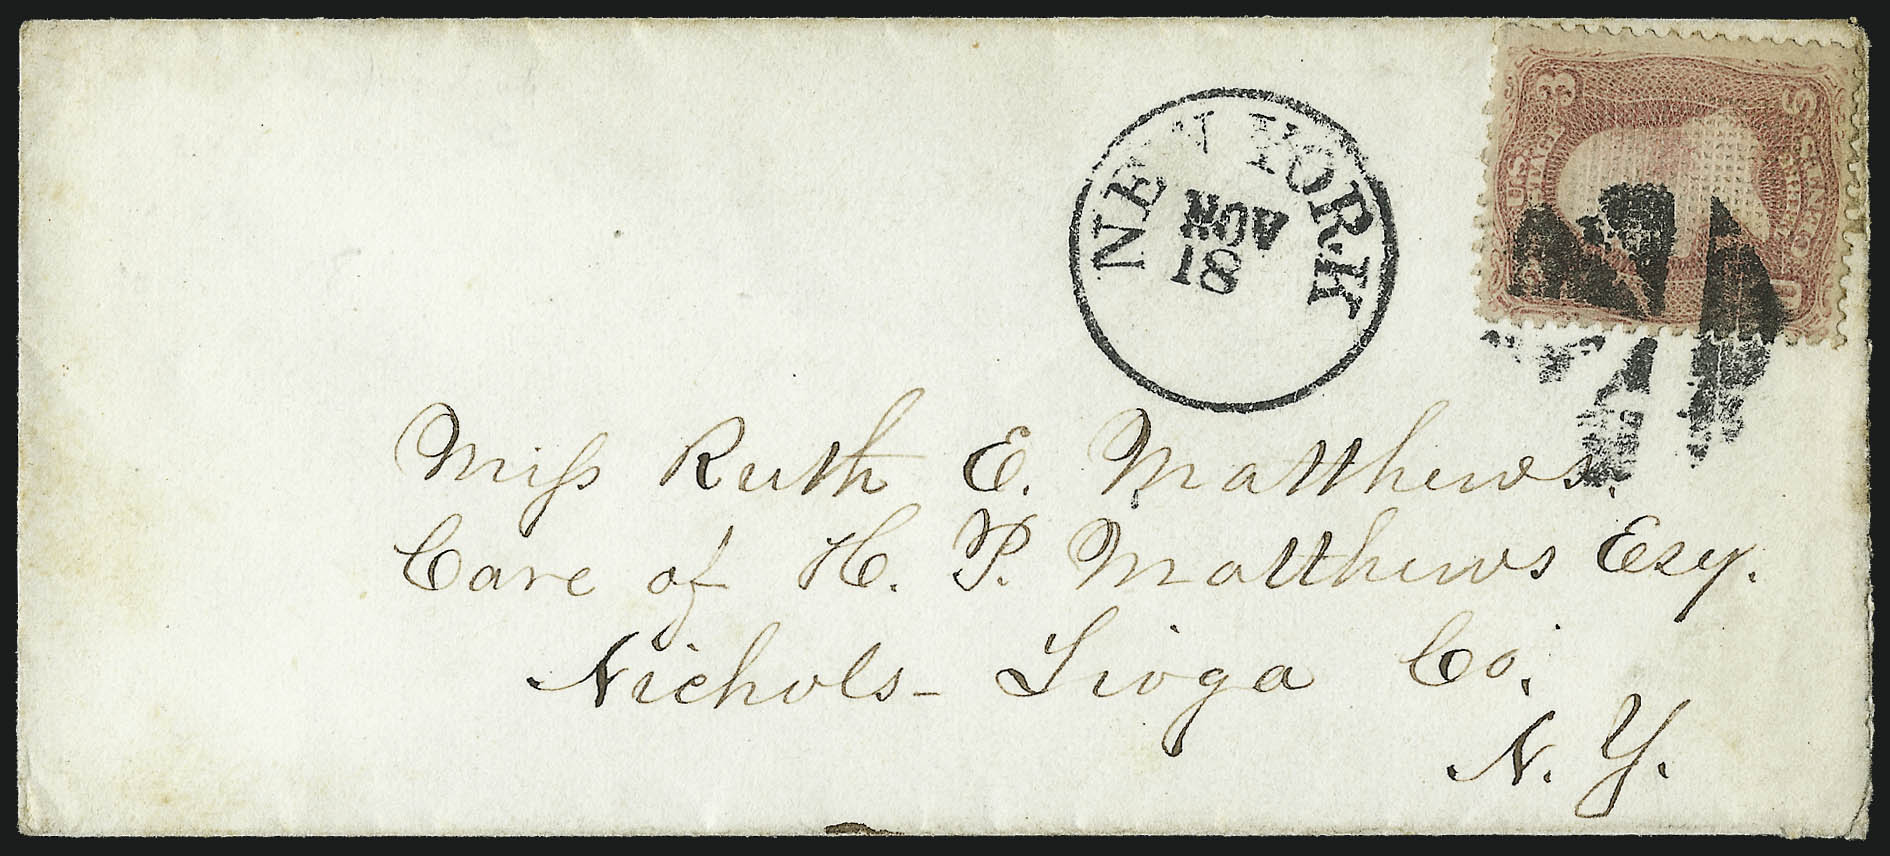 NEW YORK
NOV
18
3 U.S. POSTAGE THREE CENTS S U
Miss Ruth E. Matthews.
Care of H. P. Matthews Esq.
Nichols - Tioga Co.
N. Y.